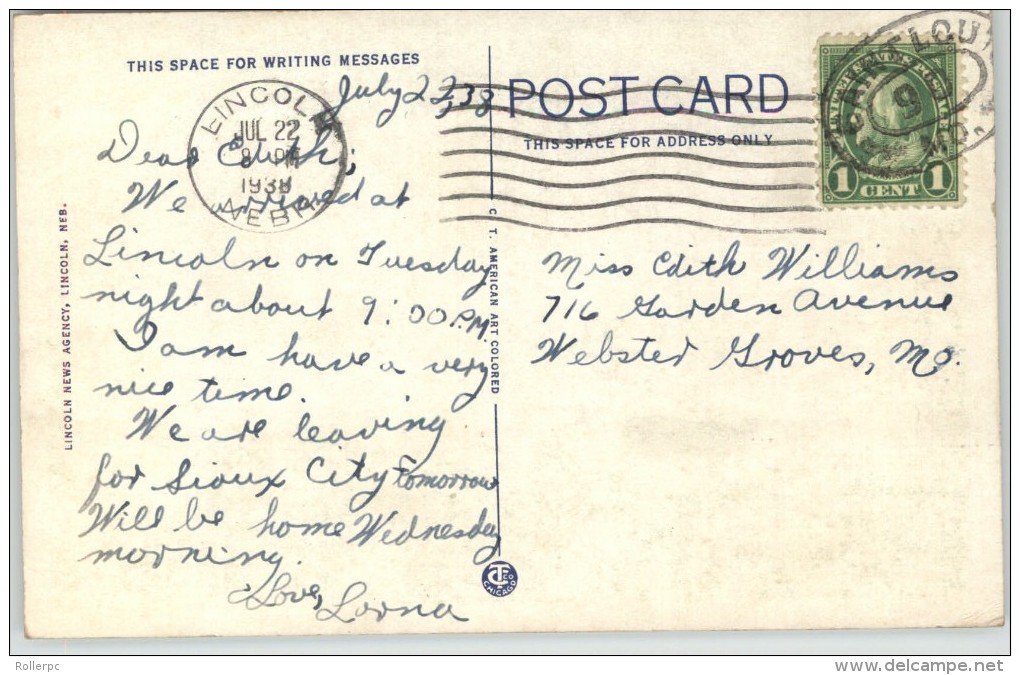 THIS SPACE FOR WRITING MESSAGES
July 22, 38
LINCOLN
JUL 22
8 PM
1938
NEBR.
Dear Edith;
We arrived at
Lincoln on Tuesday
night about 9:00 P.M.
I am have a very
nice time.
We are leaving
for Sioux City tomorrow
Will be home Wednesday
morning.
Love,
Lorna
LINCOLN NEWS AGENCY, LINCOLN, NEB.
C. T. AMERICAN ART COLORED
CT CO
CHICAGO
POST CARD
THIS SPACE FOR ADDRESS ONLY
LOUI
9
MO.
1 CENT 1
Miss Edith Williams
716 Garden Avenue
Webster Groves, Mo.
Rollerpc
www.delcampe.net